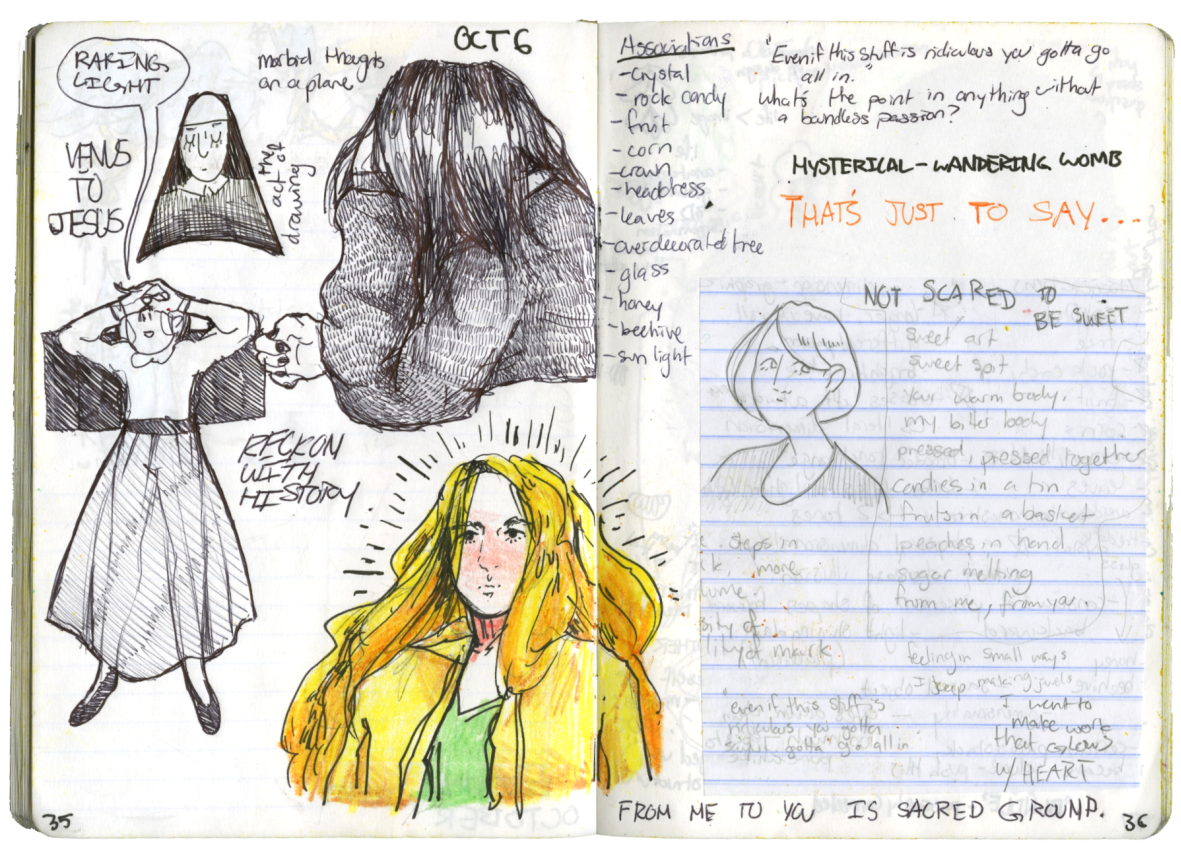 OCT 6
RAKING
LIGHT
morbid thoughts
on a plane
VENUS
TO
JESUS
the
act of
drawing
RECKON
WITH
HISTORY
35
Associations
-crystal
- rock candy
- fruit
- corn
-crown
-headdress
-leaves
-overdecorated tree
-glass
- honey
- beehive
-sun light
"Even if this stuff is ridiculous you gotta go
all in."
what's the point in anything without
a boundless passion?
HYSTERICAL - WANDERING WOMB
THAT'S JUST TO SAY...
NOT SCARED TO
BE SWEET
sweet art
sweet spit
your warm body,
my bitter body
pressed, pressed together
candies in a tin
fruits in a basket
peaches in hand
sugar melting
from me, from you
feeling in small ways
I keep making jewels
steps in
more
ume.
sity of
mark.
even if this stuff is
ridiculous you gotta
gotta go all in
I want to
make work
that GLOWS
w/ HEART
FROM ME TO YOU IS SACRED GROUND.
36